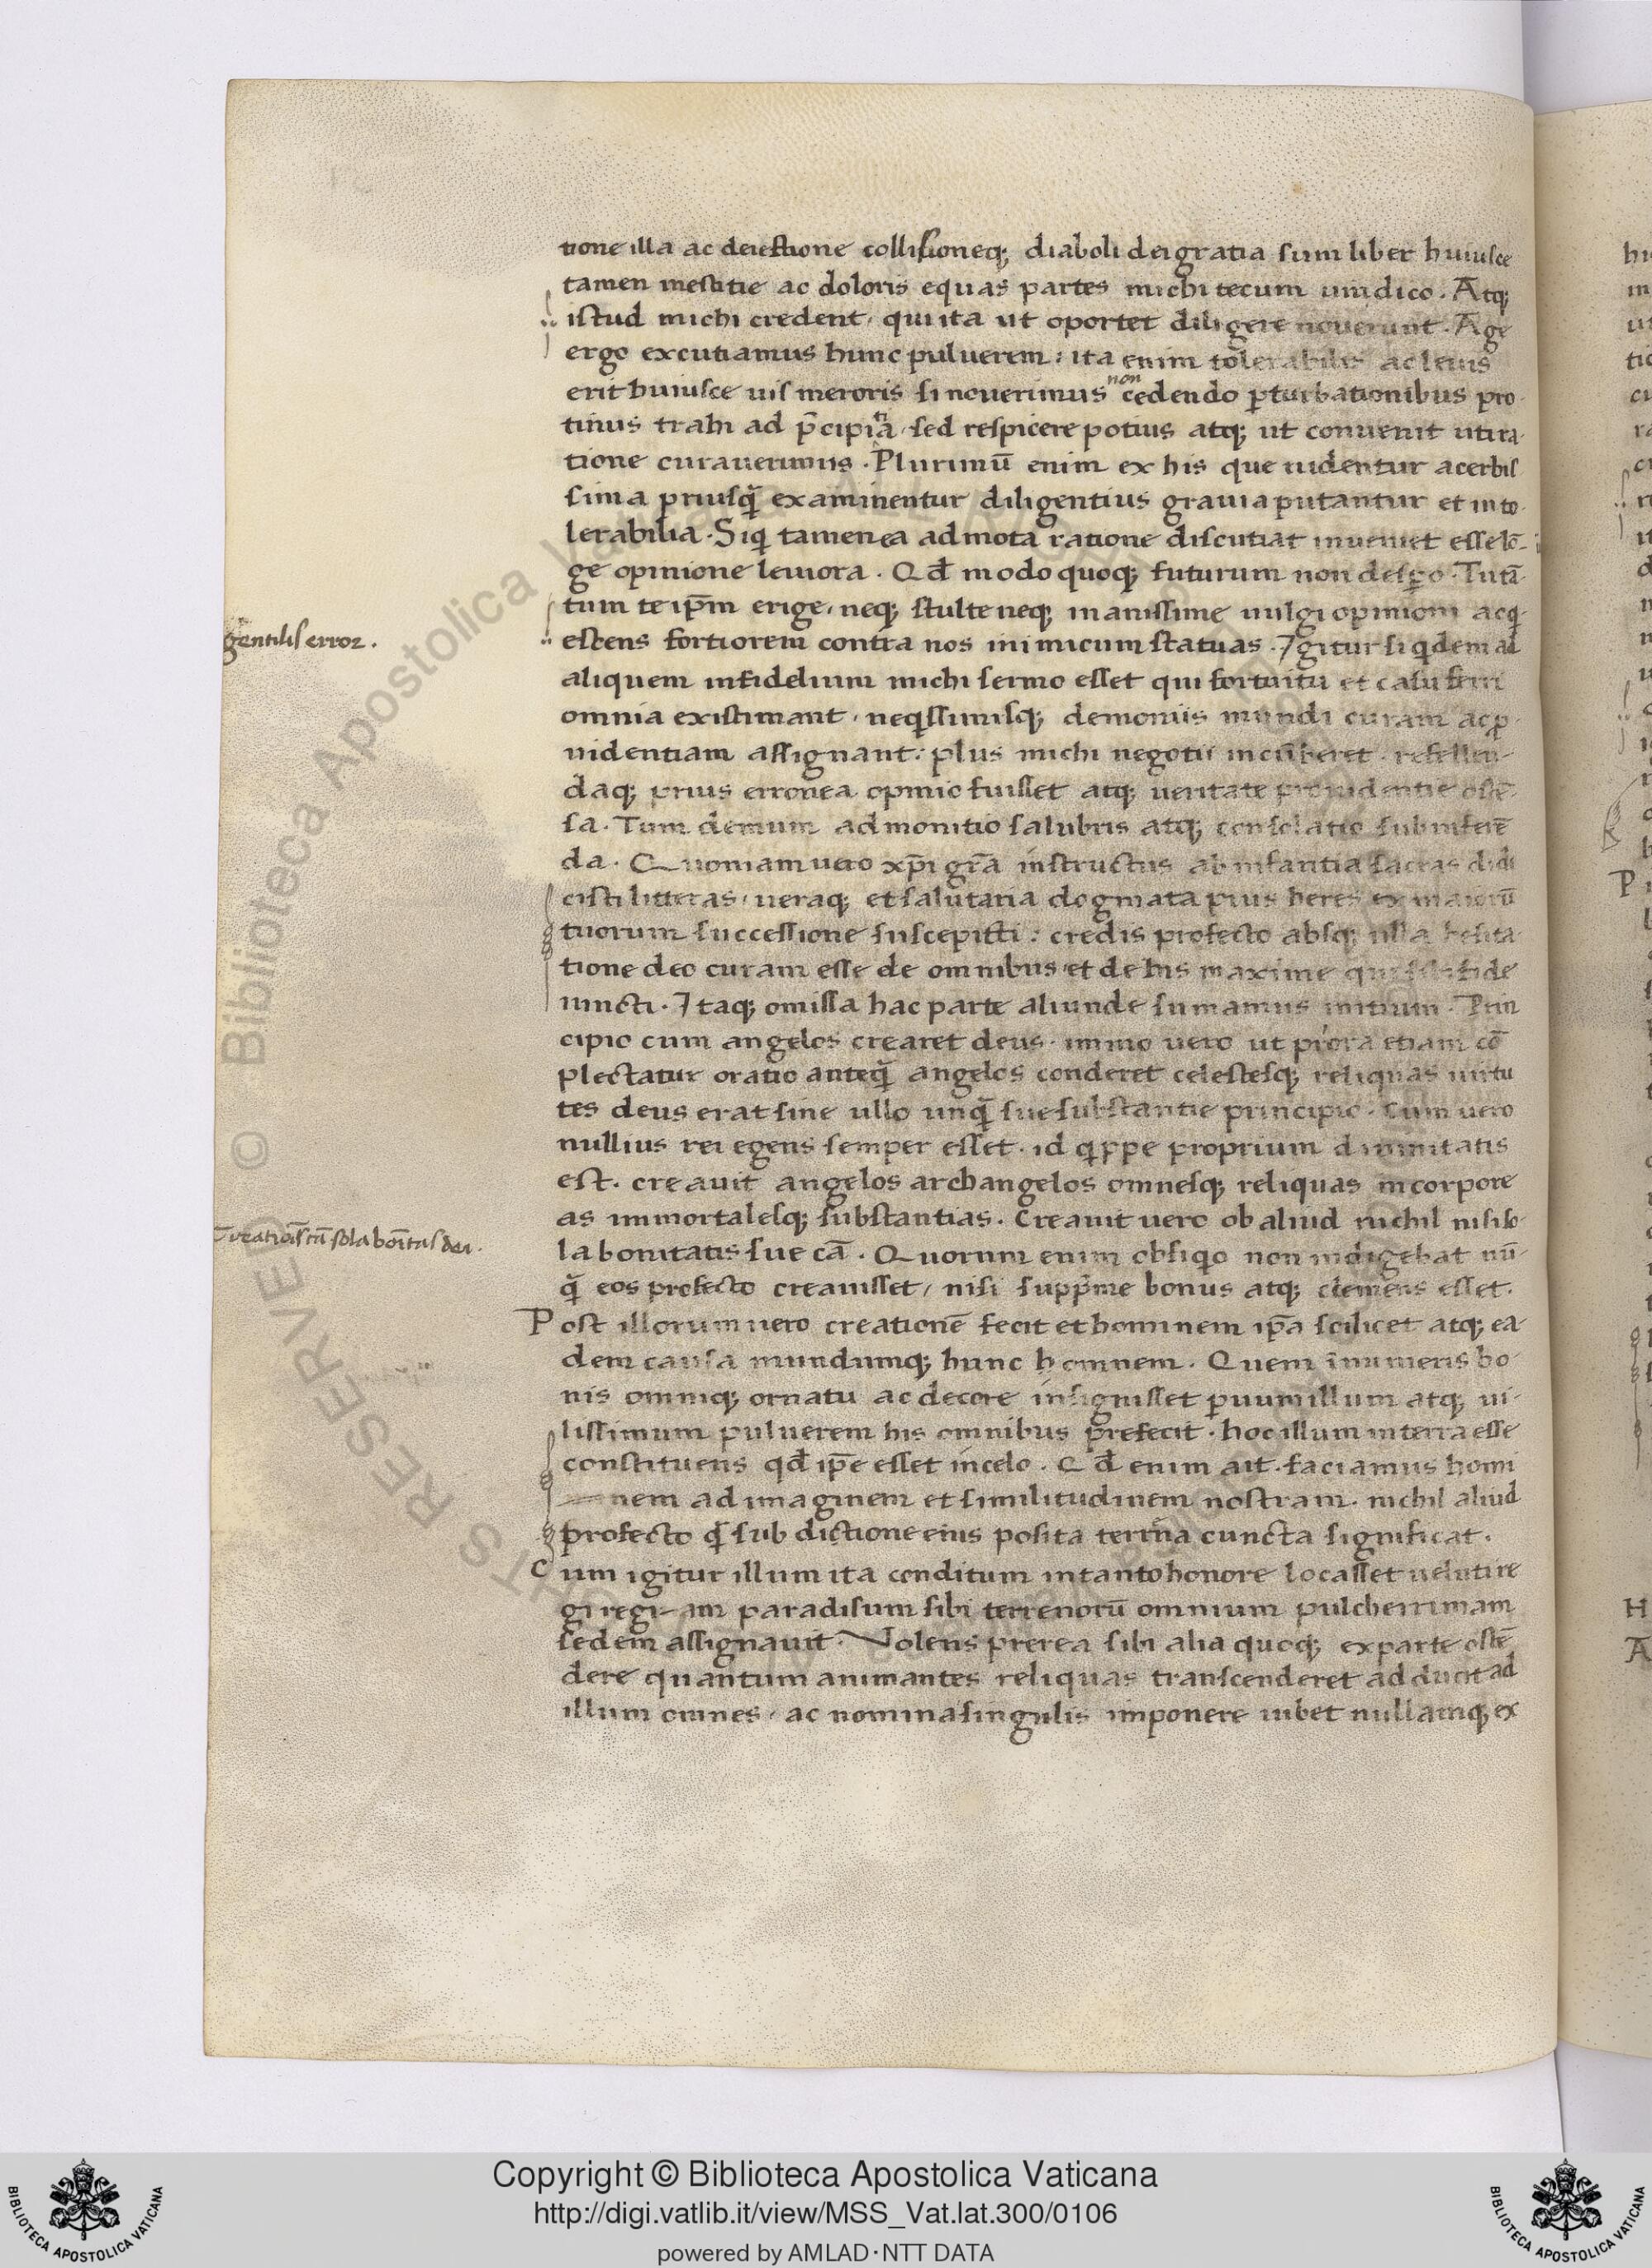 tione illa ac deiectione collisioneq; diaboli dei gratia sum liber huiusce
tamen mestitie ac doloris equas partes michi tecum uindico. Atq;
istud michi credent, qui ita ut oportet diligere nouerunt. Age
ergo excutiamus hunc puluerem: ita enim tolerabilis ac leuis
erit huiusce uis meroris si nouerimus non cedendo pturbationibus pro
tinus trahi ad p̄cipitia, sed respicere potius atq; ut conuenit uti ra
tione curauerimus. Plurimū enim ex his que uidentur acerbis
sima priusq̄ examinentur diligentius grauia putantur et into
lerabilia. Siq tamen ea admota ratione discutiat inueniet esse lō
ge opinione leuiora. Qd̄ modo quoq; futurum non despo. Tutā
tum te ip̄m erige, neq; stulte neq; inanissime uulgi opinioni acq
escens fortiorem contra nos inimicum statuas. Igitur si qdem ad
gentilis error.
aliquem infidelium michi sermo esset qui fortuitu et casu ferri
omnia existimant, neqssimisq; demoniis mundi curam ac p
uidentiam assignant: plus michi negotii incūberet. refellen
daq; prius erronea opinio fuisset atq; ueritate prouidentie ostē
sa. Tum demum admonitio salubris atq; consolatio subinferē
da. Quoniam uero xp̄i gr̄a instructus ab infantia sacras didi
cisti litteras, ueraq; et salutaria dogmata pius heres ex maiorū
tuorum successione suscepisti: credis profecto absq; ulla hesita
tione deo curam esse de omnibus et de his maxime qui illi fide
iuncti. Itaq; omissa hac parte aliunde sumamus initium. Prin
cipio cum angelos crearet deus. immo uero ut priora etiam cō
plectatur oratio anteq̄ angelos conderet celestesq; reliquas uirtu
tes deus erat sine ullo unq̄ sue substantie principio. Cum uero
nullius rei egens semper esset. id qppe proprium diuinitatis
est. creauit angelos archangelos omnesq; reliquas incorpore
as immortalesq; substantias. Creauit uero ob aliud nichil nisi so
Creatiōis cā sola bōitas dei.
la bonitatis sue cā. Quorum enim obsiqo non indigebat nū
q̄ eos profecto creauisset, nisi supp̄me bonus atq; clemens esset.
Post illorum uero creationē fecit et hominem ip̄a scilicet atq; ea
dem causa mundumq; hunc homnem. Quem īnumeris bo
nis omniq; ornatu ac decore insignisset puum illum atq; ui
lissimum puluerem his omnibus prefecit. hoc illum in terra esse
constituens qd̄ ip̄e esset in celo. Qd̄ enim ait. faciamus homi
nem ad imaginem et similitudinem nostram. nichil aliud
profecto q̄ sub dictione eius posita terrena cuncta significat.
Cum igitur illum ita conditum in tanto honore locasset uelut i re
gi regiam paradisum sibi terrenorū omnium pulcherrimam
sedem assignauit. Volens prerea sibi alia quoq; ex parte ostē
dere quantum animantes reliquas transcenderet adducit ad
illum omnes, ac nomina singulis imponere iubet nullamq; ex
© Biblioteca Apostolica Vaticana
RIGHTS RESERVED
Copyright © Biblioteca Apostolica Vaticana
http://digi.vatlib.it/view/MSS_Vat.lat.300/0106
powered by AMLAD·NTT DATA
BIBLIOTECA APOSTOLICA VATICANA
BIBLIOTECA APOSTOLICA VATICANA